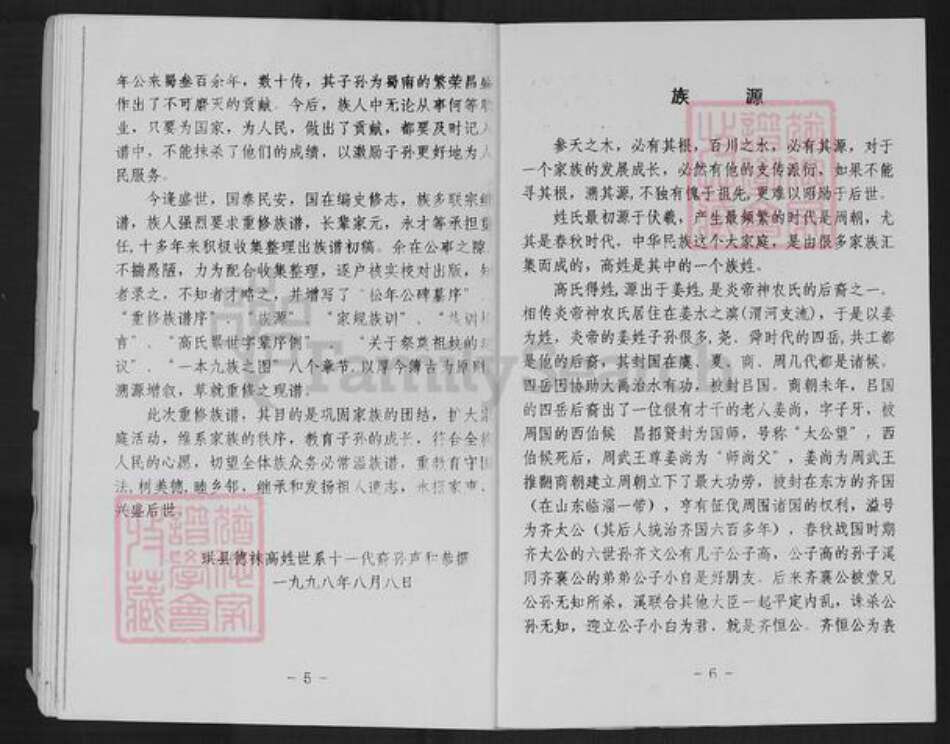 年公来蜀叁百余年，数十传，其子孙为蜀南的繁荣昌盛
作出了不可磨灭的贡献。今后，族人中无论从事何等职
业，只要为国家，为人民，做出了贡献，都要及时记入
谱中，不能抹杀了他们的成绩，以激励子孙更好地为人
民服务。
今逢盛世，国泰民安，国在编史修志，族多联宗
谱，族人强烈要求重修族谱，长辈家元，永才等承担重
任，十多年来积极收集整理出族谱初稿。余在公事之隙，
不揣愚陋，力为配合收集整理，逐户核实校对出版，知
者录之，不知者才略之，并增写了“松年公碑墓序”
“重修族谱序”、“族源”、“家规族训”、“族训
言”、“高氏累世字辈序例”、“关于祭奠祖坟的
议”、“一本九族之图”八个章节，以厚今薄古为原则，
溯源增叙，草就重修之现谱。
此次重修族谱，其目的是巩固家族的团结，扩大家
庭活动，维系家族的秩序，教育子孙的成长，符合全
人民的心愿，切望全体族众务必常温族谱，重教育守国
法，树美德，睦乡邻，继承和发扬祖人遗志，永振家声，
兴盛后世。
珙县德铢高姓世系十一代裔孙声和恭撰
一九九八年八月八日
－5－
族 源
参天之木，必有其根，百川之水，必有其源，对于
一个家族的发展成长，必然有他的支传派衍，如果不能
寻其根，溯其源，不独有愧于祖先，更难以昭示于后世。
姓氏最初源于伏羲，产生最频繁的时代是周朝，尤
其是春秋时代，中华民族这个大家庭，是由很多家族汇
集而成的，高姓是其中的一个族姓。
高氏得姓，源出于姜姓，是炎帝神农氏的后裔之一。
相传炎帝神农氏居住在姜水之滨(渭河支流)，于是以姜
为姓，炎帝的姜姓子孙很多，尧、舜时代的四岳，共工都
是他的后裔，其封国在虞、夏、商、周几代都是诸候。
四岳因协助大禹治水有功，被封吕国。商朝末年，吕国
的四岳后裔出了一位很有才干的老人姜尚，字子牙，被
周国的西伯候 昌招贤封为国师，号称“太公望”，西
伯候死后，周武王尊姜尚为“师尚父”，姜尚为周武王
推翻商朝建立周朝立下了最大功劳，被封在东方的齐国
（在山东临淄一带），享有征伐周围诸国的权利，溢号
为齐太公（其后人统治齐国六百多年），春秋战国时期
齐太公的六世孙齐文公有儿子公子高，公子高的孙子溪
同齐襄公的弟弟公子小白是好朋友。后来齐襄公被堂兄
公孙无知所杀，溪联合其他大臣一起平定内乱，诛杀公
孙无知，迎立公子小白为君，就是齐恒公。齐恒公为表
－6－